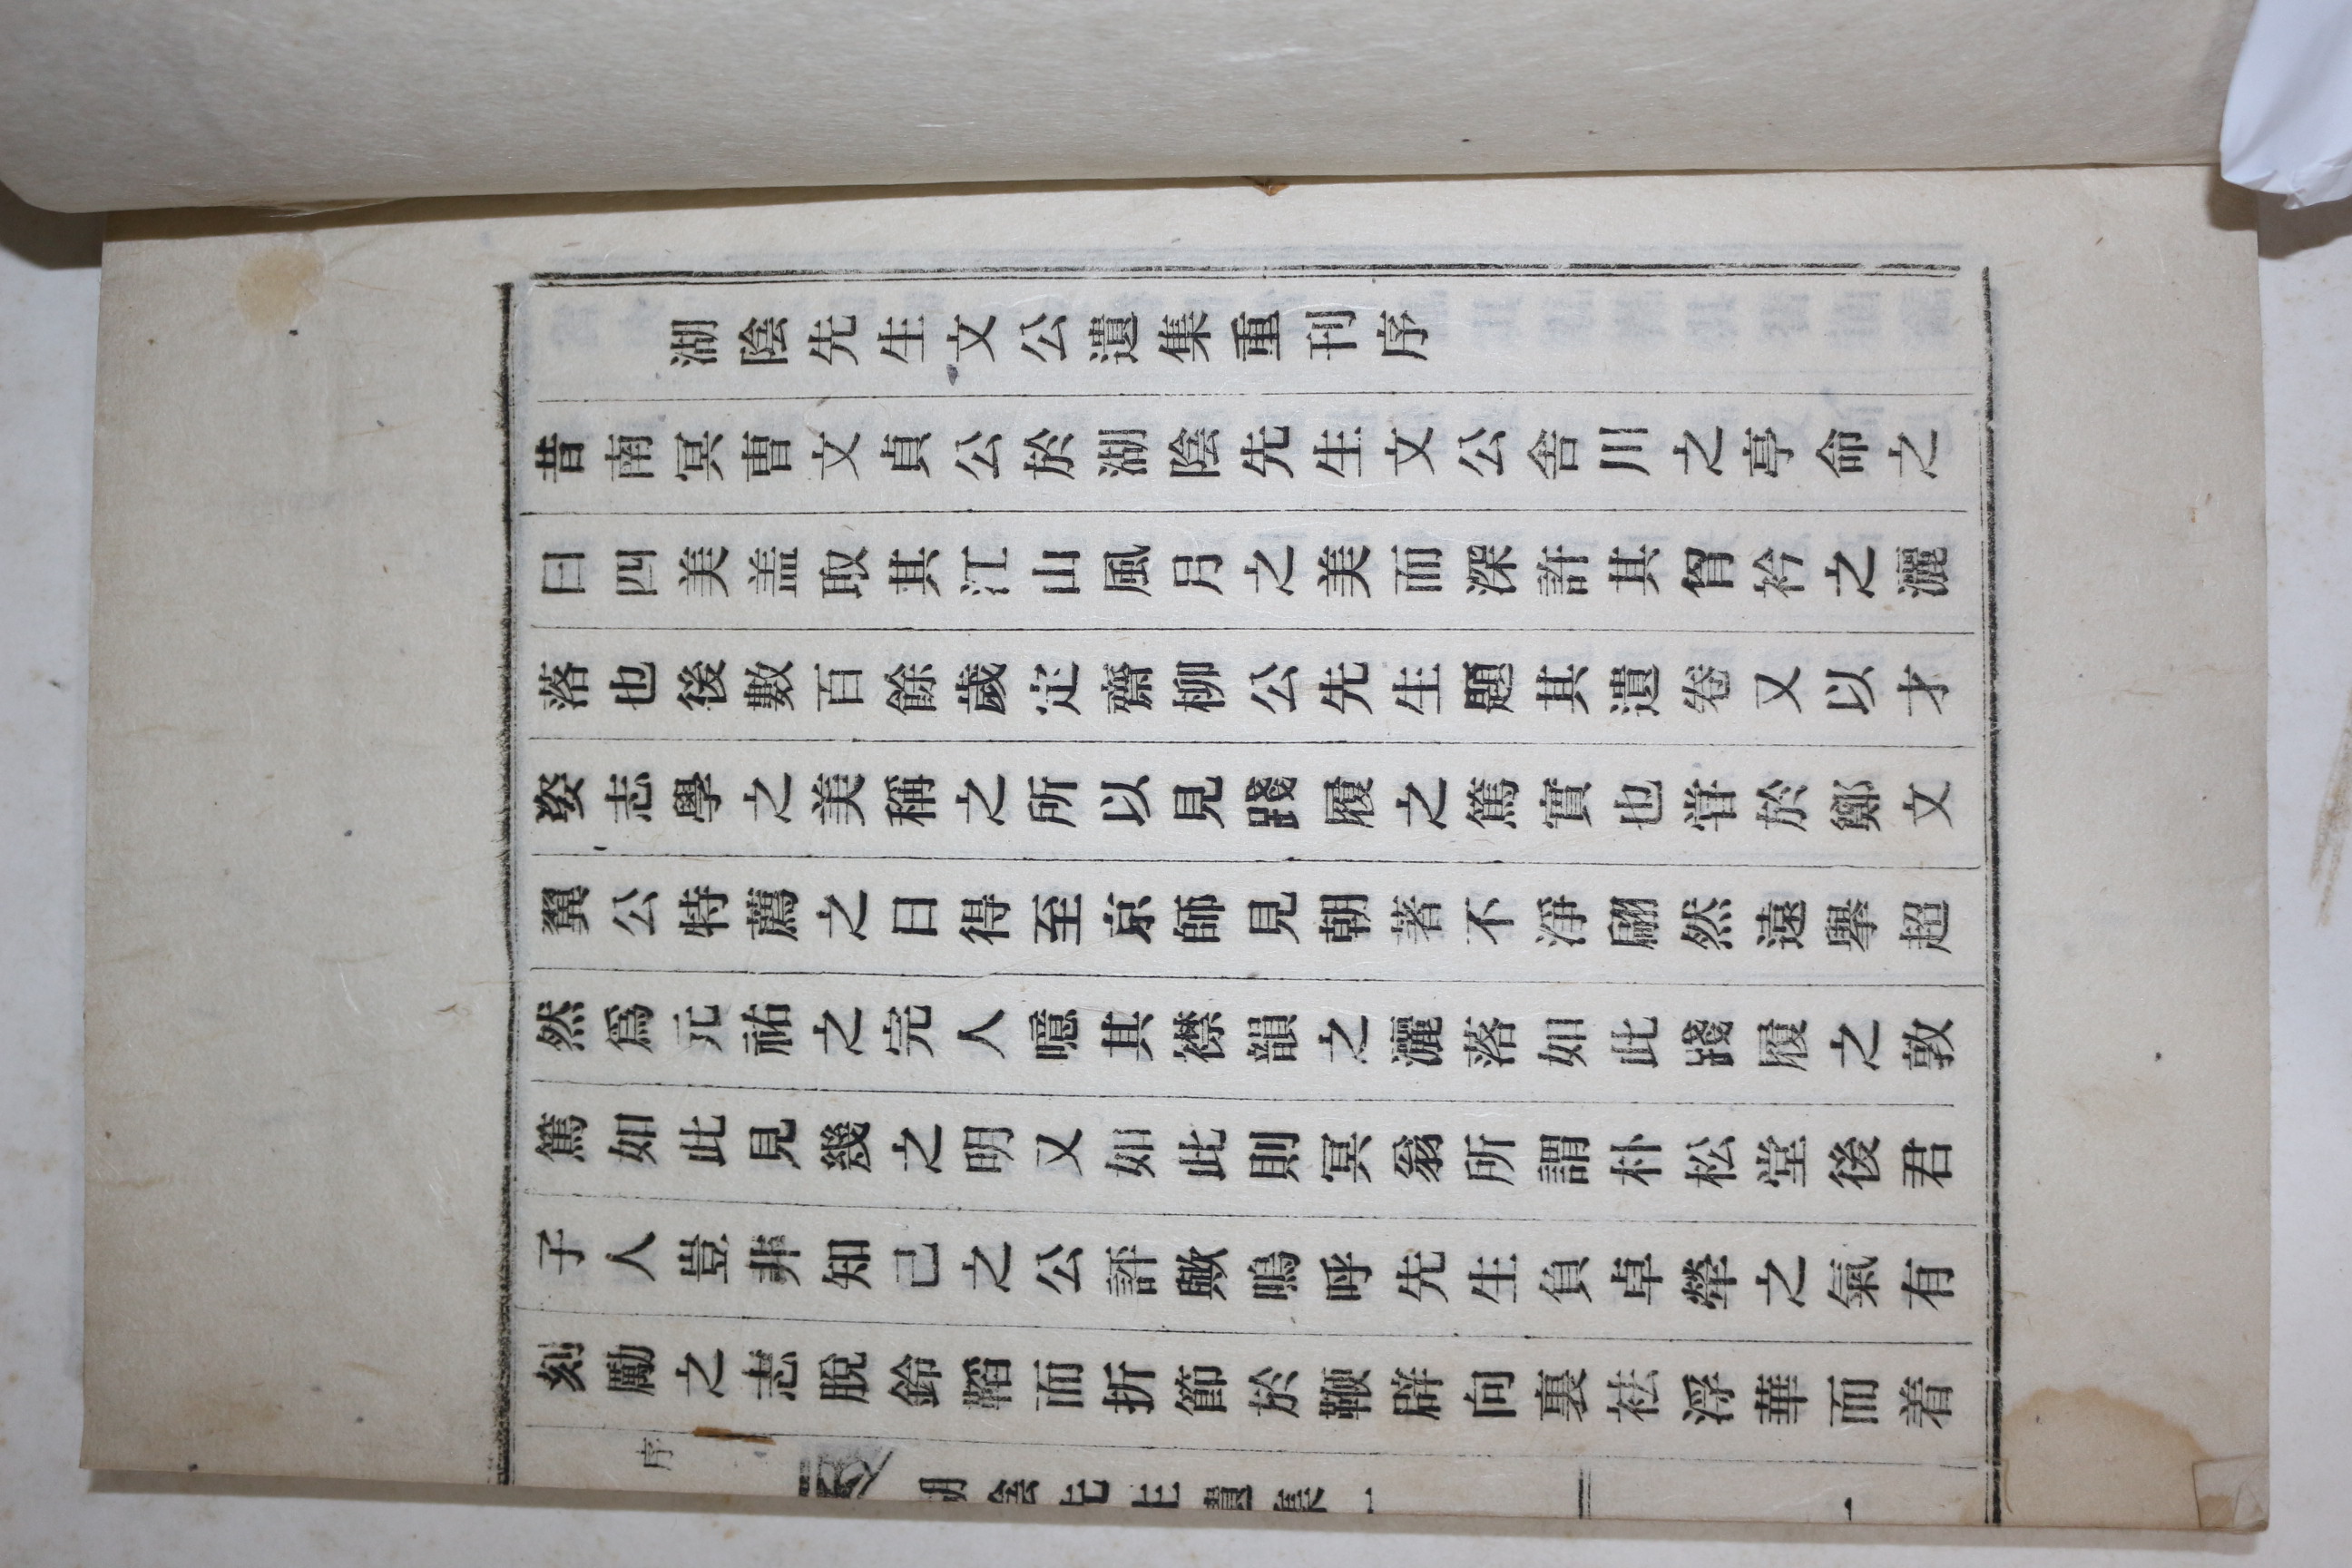 湖陰先生文公遺集重刊序
昔南冥曺文貞公於湖陰先生文公舍川之亭命之
曰四美盖取其江山風月之美而深許其胷衿之灑
落也後數百餘歲定齋柳公先生題其遺卷又以才
姿志學之美稱之所以見踐履之篤實也甞於鄭文
翼公特薦之日得至京師見朝著不淨翩然遠擧超
然爲元祐之完人噫其襟韻之灑落如此踐履之敦
篤如此見幾之明又如此則冥翁所謂朴松堂後君
子人豈非知己之公評歟嗚呼先生負卓犖之氣有
刻勵之志脫鈴韜而折節於鞭辟向裏祛浮華而着
序
湖陰先生遺集一
一